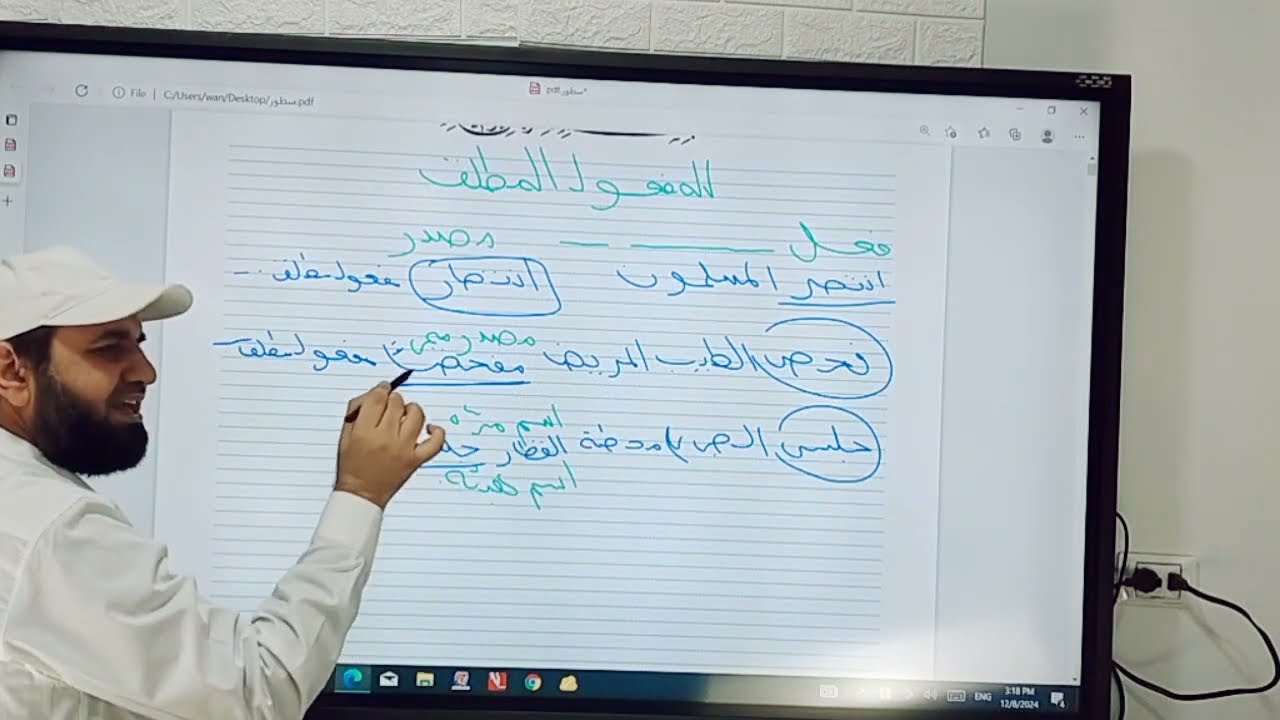 File | C:/Users/wan/Desktop/سطور.pdf
سطور.pdf*
المفعول المطلق
فعل ـــ ـــ مصدر
انتصر المسلمون انتصار مفعول مطلق
مصدر ميمي
فحص الطبيب المريض مفحص مفعول مطلق
اسم مرة
جلس القطار
اسم هيئة
ENG
3:18 PM
12/8/2024
4